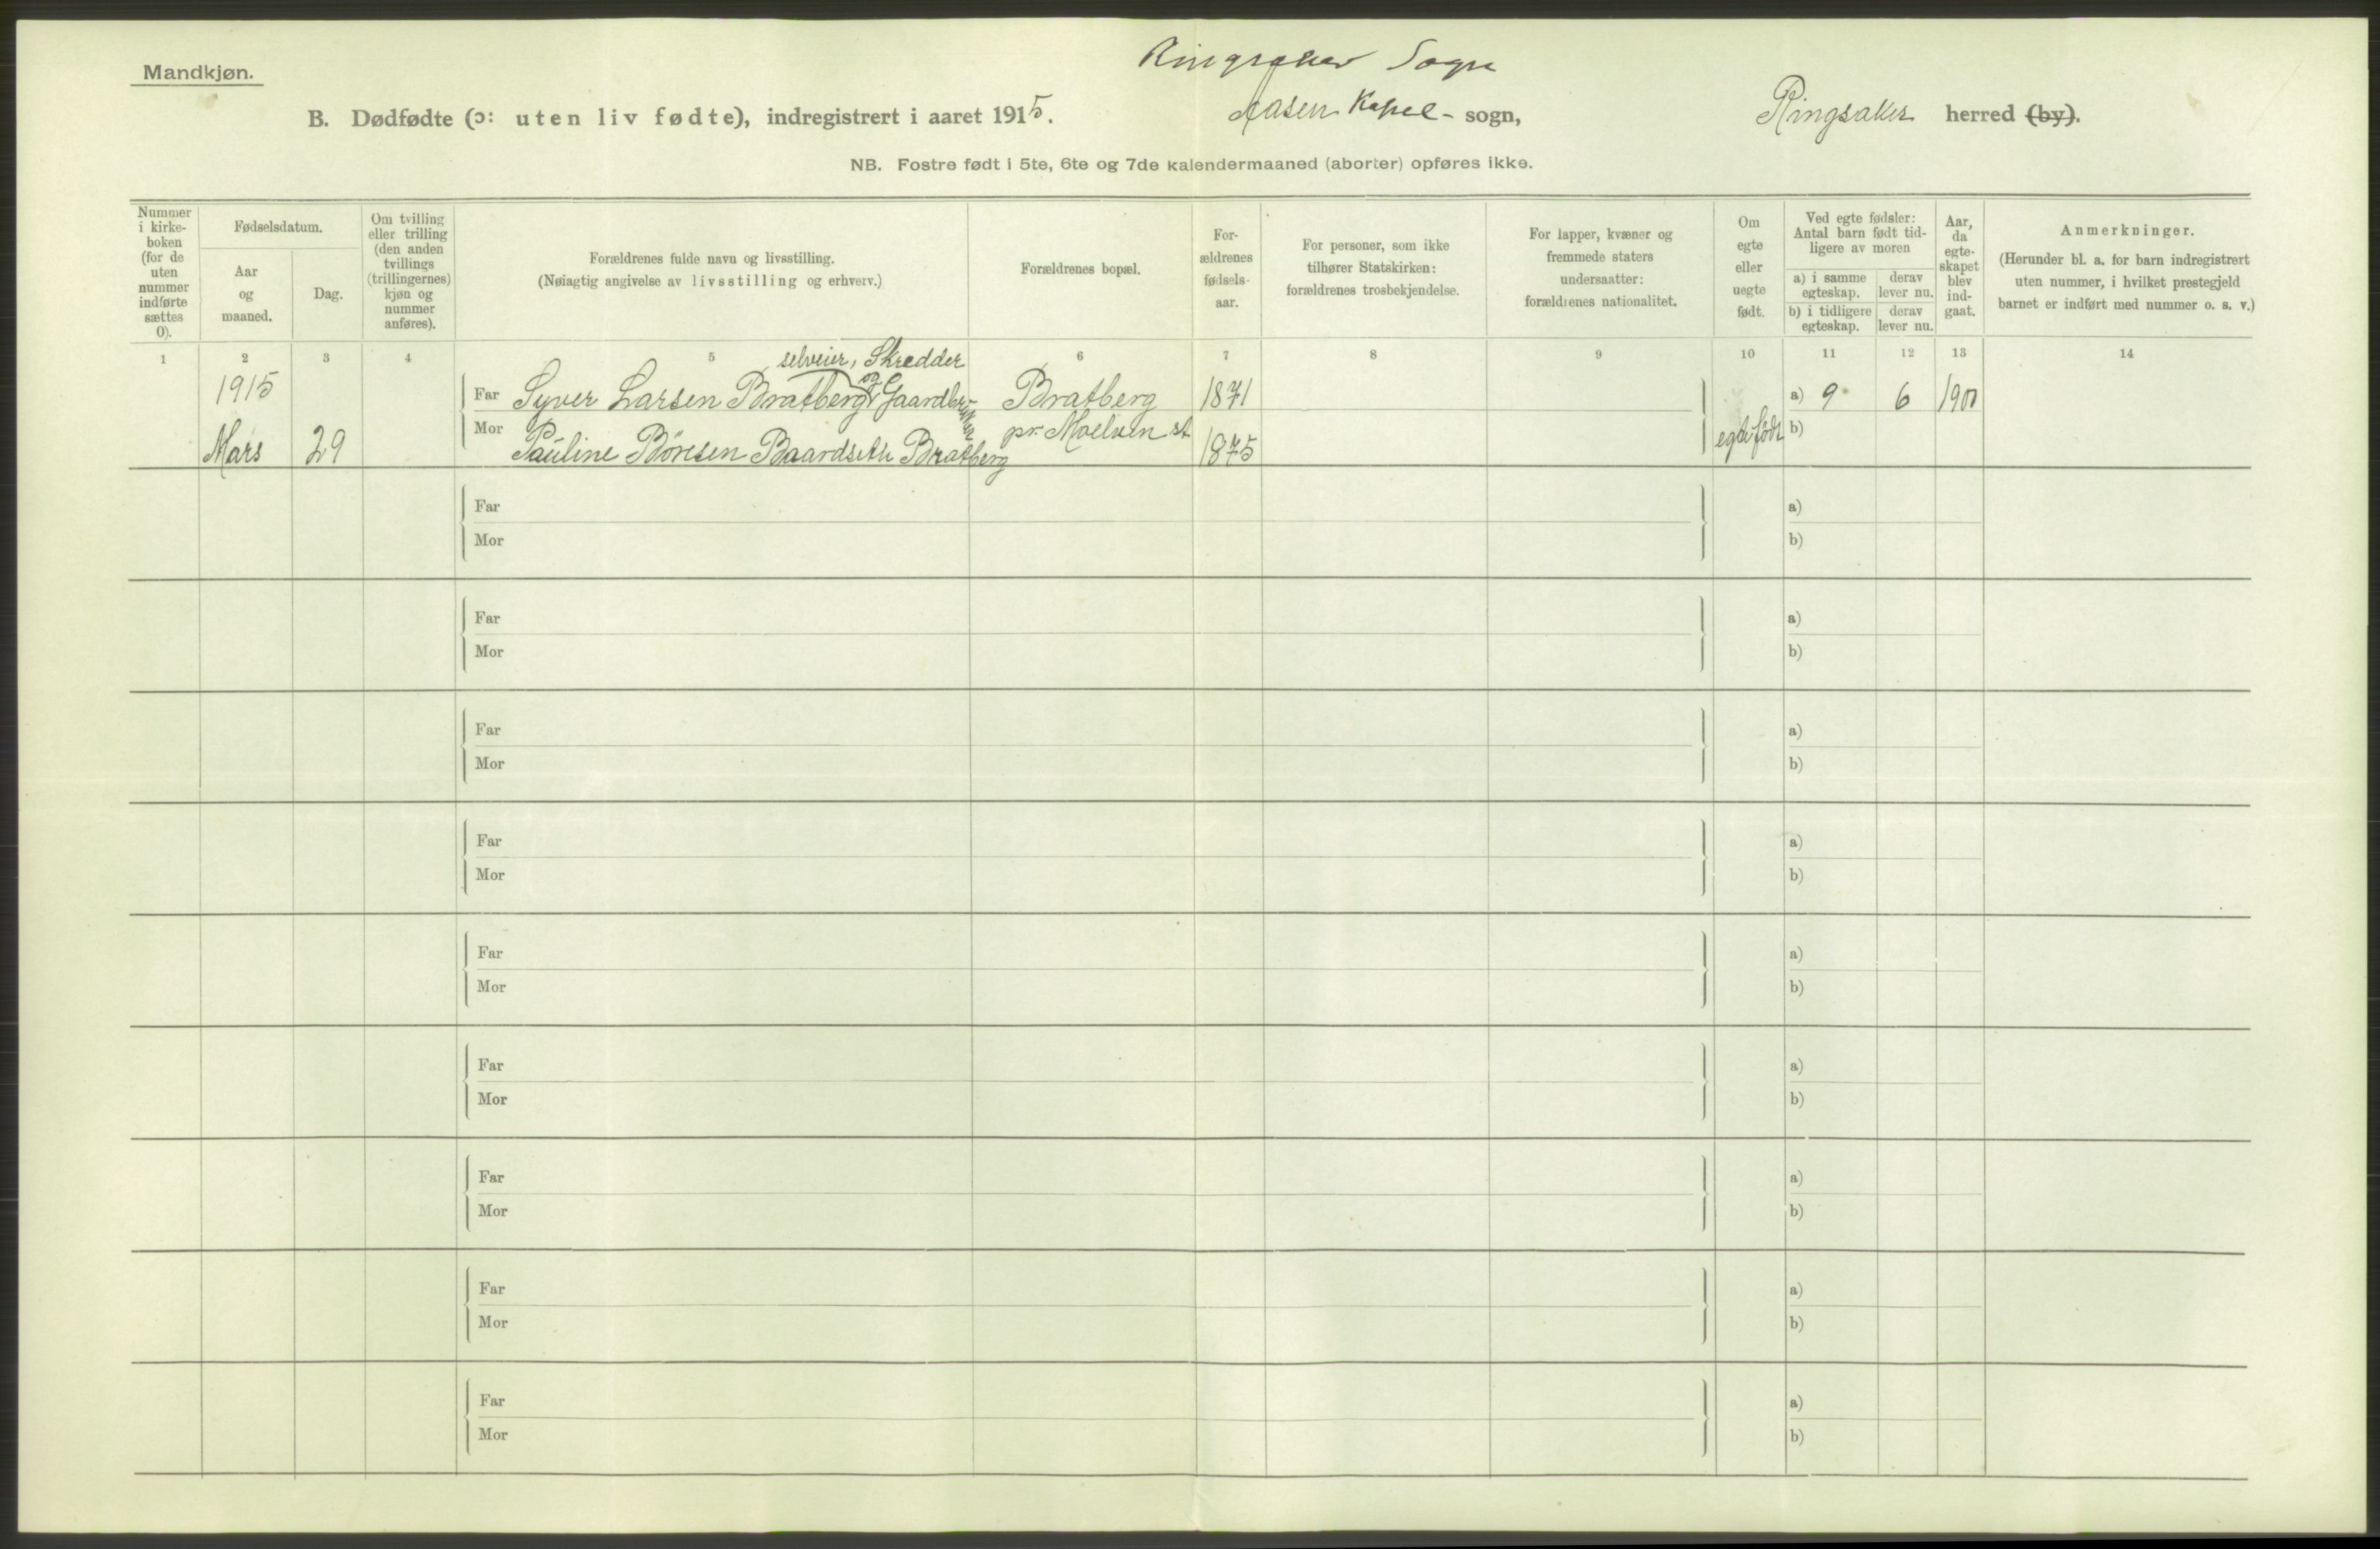 Mandkjøn.
Ringsaker Sogn
B. Dødfødte (ɔ: uten liv fødte), indregistrert i aaret 1915.
Aasen Kapel- sogn,
Ringsaker herred (by).
NB. Fostre født i 5te, 6te og 7de kalendermaaned (aborter) opføres ikke.
Nummer
i kirke-
boken
(for de
uten
nummer
indførte
sættes
0).
Fødselsdatum.
Aar
og
maaned.
Dag.
Om tvilling
eller trilling
(den anden
tvillings
(trillingernes)
kjøn og
nummer
anføres).
Forældrenes fulde navn og livsstilling.
(Nøiagtig angivelse av livsstilling og erhverv.)
Forældrenes bopæl.
For-
ældrenes
fødsels-
aar.
For personer, som ikke
tilhører Statskirken:
forældrenes trosbekjendelse.
For lapper, kvæner og
fremmede staters
undersaatter:
forældrenes nationalitet.
Om
egte
eller
uegte
født.
Ved egte fødsler:
Antal barn født tid-
ligere av moren
a) i samme
egteskap.
derav
lever nu.
b) i tidligere
egteskap.
derav
lever nu.
Aar,
da
egte-
skapet
blev
ind-
gaat.
Anmerkninger.
(Herunder bl. a. for barn indregistrert
uten nummer, i hvilket prestegjeld
barnet er indført med nummer o. s. v.)
1 2 3 4 5 6 7 8 9 10 11 12 13 14
selveier, Skredder
1915
Far Syver Larsen Bratberg og Gaardbruker Bratberg 1871 a) 9 6 1900
Mor pr. Moelven st. egte født b)
Mars 29 Pauline Børesen Baardseth Bratberg 1875
Far a)
Mor b)
Far a)
Mor b)
Far a)
Mor b)
Far a)
Mor b)
Far a)
Mor b)
Far a)
Mor b)
Far a)
Mor b)
Far a)
Mor b)
Far a)
Mor b)